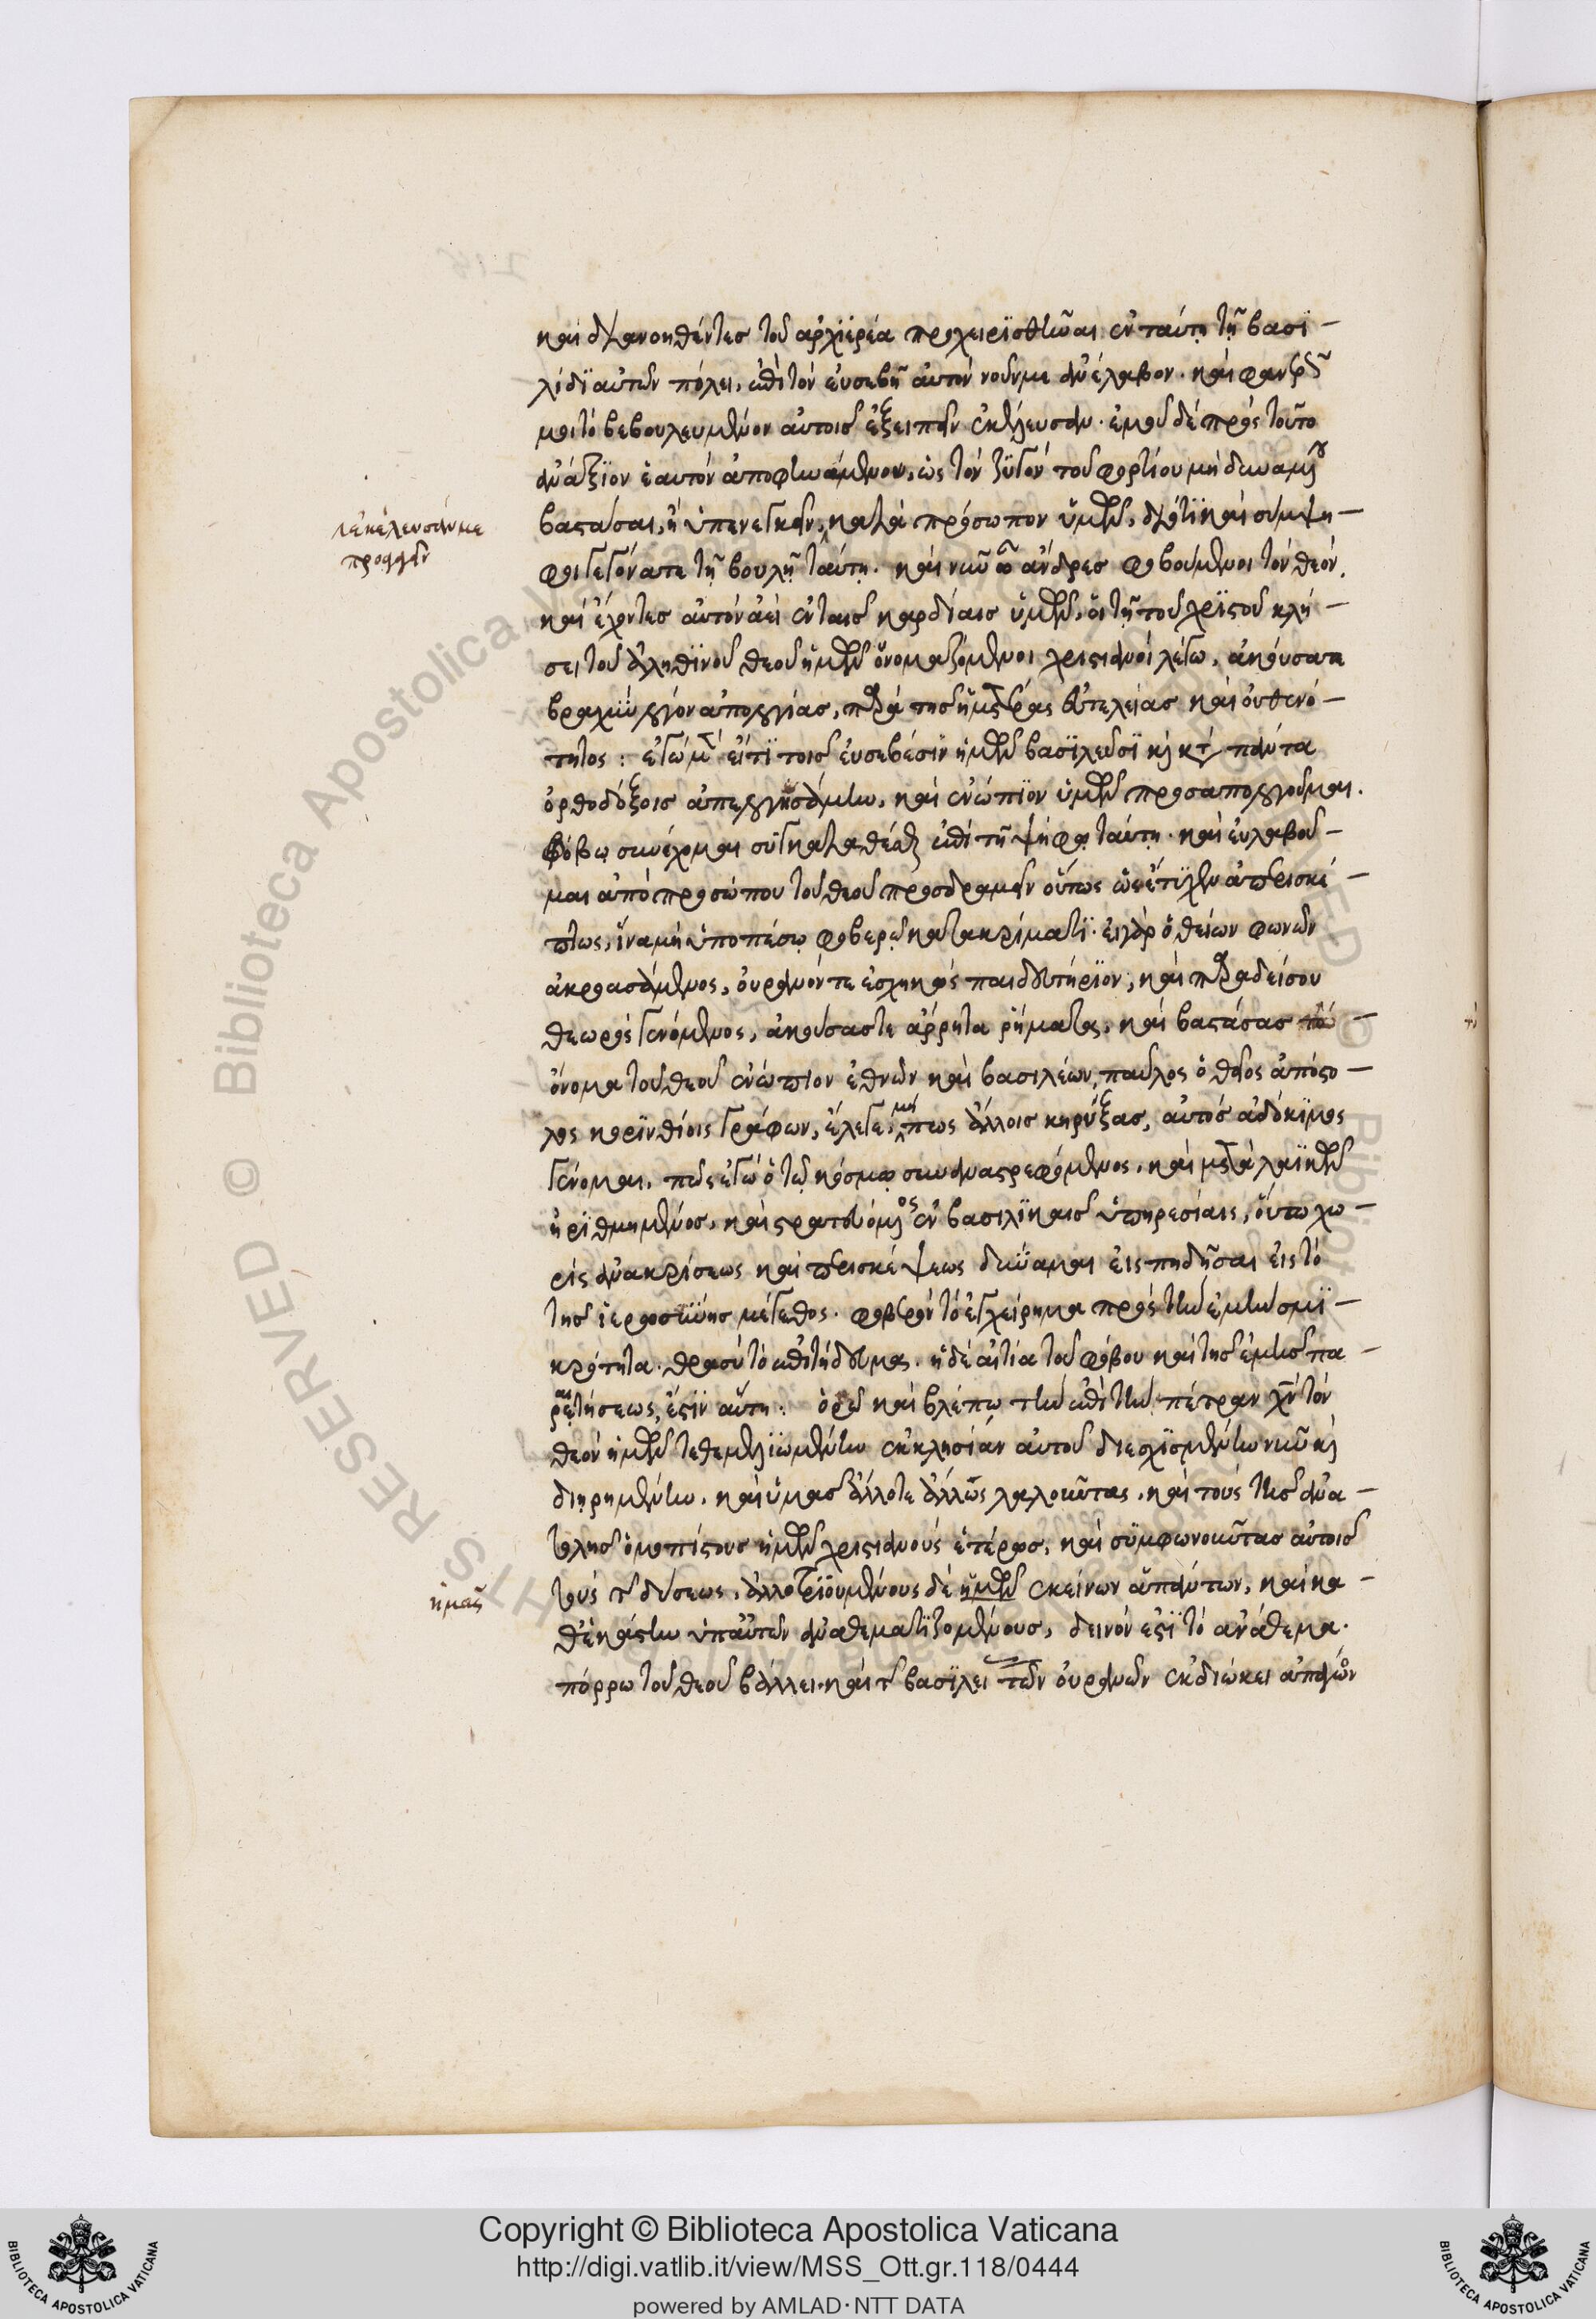 καὶ διανοηθέντες τοῦ ἀρχιερέα προχειρϊσθῆναι ἐν ταύτῃ τῇ βασϊ-
λίδϊ αὐτῶν πόλει, ἐπὶ τὸν εὐσεβῆ αὐτῶν νοῦν με ἀνέλαβον. καὶ φανερῶς
μοι τὸ βεβουλευμένον αὐτοῖς ἐξειπεῖν ἐκέλευσαν. ἐμοῦ δὲ πρὸς τοῦτο
ἀνάξϊον ἑαυτὸν ἀποφηναμένου, ὡς τὸν ζϋγὸν τοῦ φορτίου μὴ δυναμένου
βαστάσαι, ἢ ὑπενεγκεῖν, κατὰ πρόσωπον ὑμῶν, διότϊ καὶ σύμψη-
λεκέλευσάν με
προσελθεῖν
φοι γεγόνατε τῇ βουλῇ ταύτῃ. καὶ νῦν ὦ ἄνδρες φοβούμενοι τὸν θεόν,
καὶ ἔχοντες αὐτὸν ἀεὶ ἐν ταῖς καρδίαις ὑμῶν, οἱ τῇ τοῦ χρϊστοῦ κλή-
σει τοῦ ἀληθϊνοῦ θεοῦ ἡμῶν ὀνομαζόμενοι χριστιανοὶ λέγω, ἀκούσατε
βραχὺν λόγον ἀπολογίας, παρὰ τῆς ἡμετέρας εὐτελείας καὶ οὐθενό-
τητος: ἐγὼ μὲν εἴτϊ τοῖς εὐσεβέσϊν ἡμῶν βασϊλεῦσϊ καὶ κατὰ πάντα
ὀρθοδόξοις ἀπελογησάμην, καὶ ἐνώπϊον ὑμῶν προσαπολογοῦμαι.
φόβῳ συνέχομαι συγκαταθέσθαι ἐπὶ τῇ ψήφῳ ταύτῃ. καὶ εὐλαβοῦ-
μαι ἀπὸ προσώπου τοῦ θεοῦ προσδραμεῖν οὕτως ὡς ἔτϋχεν ἀπερισκέ-
πτως, ἵνα μὴ ὑποπέσω φοβερῷ κατακρίματϊ. εἰ γὰρ ὁ θείων φωνῶν
ἀκροασάμενος, οὐρανόν τε ἐσχηκὼς παιδευτήρϊον, καὶ παραδείσου
θεωρὸς γενόμενος, ἀκούσας τε ἄρρητα ῥήματα, καὶ βαστάσας τὸ
ὄνομα τοῦ θεοῦ ἐνώπιον ἐθνῶν καὶ βασιλέων, παῦλος ὁ θεῖος ἀπόστο-
λος κορϊνθίοις γράφων, ἔλεγε, μή πως ἄλλοις κηρύξας, αὐτὸς ἀδόκϊμος
γένωμαι, πῶς ἐγὼ ὁ τῷ κόσμῳ συναναστρεφόμενος, καὶ μετὰ λαϊκῶν
ἠρϊθμημένος, καὶ στρατευόμενος ἐν βασιλϊκαῖς ὑπηρεσίαις, οὕτω χω-
ρὶς ἀνακρίσεως καὶ περισκέψεως δύναμαι εἰσπηδῆσαι εἰς τὸ
τῆς ἱερωσύνης μέγεθος. φοβερὸν τὸ ἐγχείρημα πρὸς τὴν ἐμὴν σμϊ-
κρότητα. θρασὺ τὸ ἐπιτήδευμα. ἡ δὲ αἰτία τοῦ φόβου καὶ τῆς ἐμῆς πα-
ραιτήσεως, ἐστϊν αὕτη: ὁρῶ καὶ βλέπω τὴν ἐπὶ τὴν πέτραν χν τὸν
θεὸν ἡμῶν τεθεμελϊωμένην ἐκκλησίαν αὐτοῦ διεσχϊσμένην νῦν καὶ
διῃρημένην, καὶ ἡμᾶς ἄλλοτε ἄλλως λαλοῦντας, καὶ τοὺς τῆς ἀνα-
τολῆς ὁμοπίστους ἡμῶν χριστιανοὺς ἑτέρως, καὶ συμφωνοῦντας αὐτοῖς
τοὺς τῆς δύσεως, ἀλλοτρϊουμένους δὲ ἡμῶν ἐκείνων ἁπάντων, καὶ κα-
ἡμᾶς
θἑκάστην ὑπ' αὐτῶν ἀναθεματϊζομένους, δεινὸν ἐστϊ τὸ ἀνάθεμα.
πόρρω τοῦ θεοῦ βάλλει. καὶ τῆς βασϊλείας τῶν οὐρανῶν ἐκδιώκει ἀπάγον
Copyright © Biblioteca Apostolica Vaticana
http://digi.vatlib.it/view/MSS_Ott.gr.118/0444
powered by AMLAD·NTT DATA